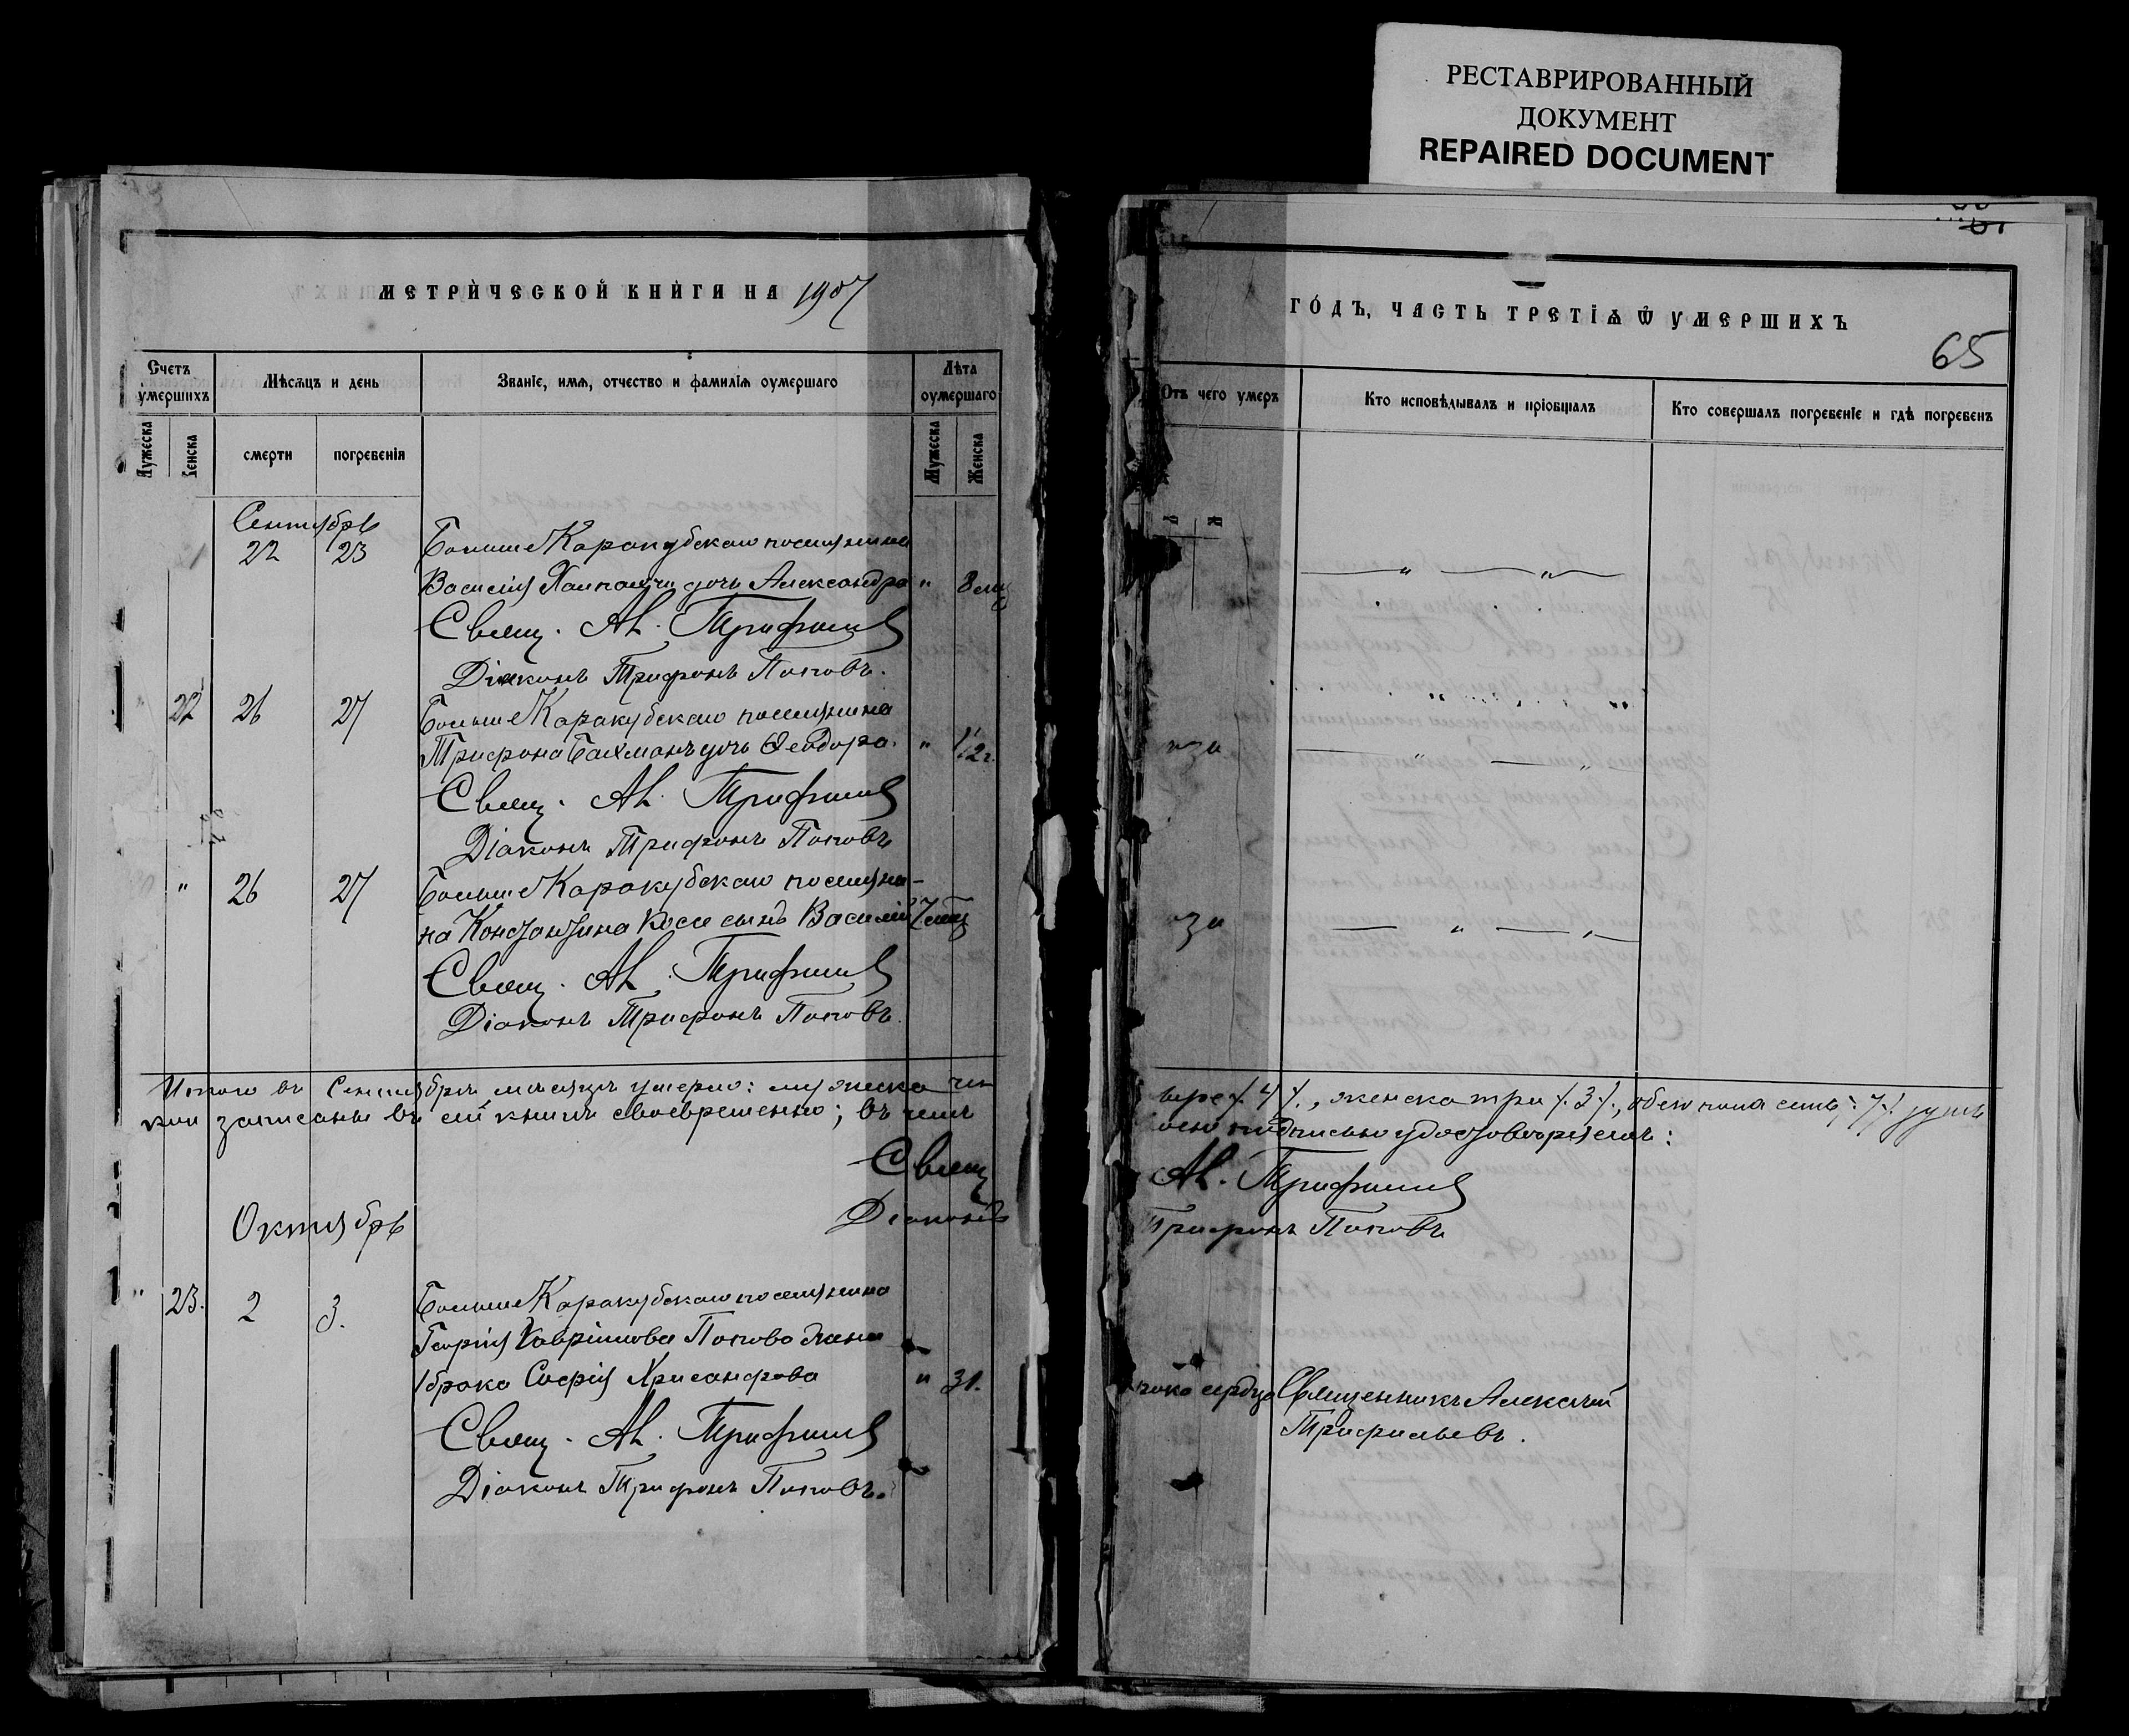 РЕСТАВРИРОВАННЫЙ
ДОКУМЕНТ
REPAIRED DOCUMENT
МЕТРИЧЕСКОЙ КНИГИ НА 1907
Счетъ умершихъ
Мѣсяцъ и день
Званіе, имя, отчество и фамилія оумершаго
Лѣта оумершаго
Мужеска
Женска
смерти
погребенія
Мужеска
Женска
Сентябрь
22 23 Больше Каракубскаго поселянина
Василія дочь Александра " 8 мц
Свящ. Ал. Трифильев
Діаконъ Трифонъ Поповъ.
22 26 27 Больше Каракубскаго поселянина
Трифона Бахманъ дочь Ѳеодора. " 1/2 г.
Свящ. Ал. Трифильев
Діаконъ Трифонъ Поповъ
" 26 27 Больше Каракубскаго поселяни-
на Константина Коси сынъ Василій 7 мц
Свящ. Ал. Трифильев
Діаконъ Трифонъ Поповъ.
Итого въ Сентябрѣ мѣсяцѣ умерло: мужеска че
кои записаны въ сей книгѣ своевременно; въ чемъ
Свящ
Діаконъ
Октябрь
" 23. 2 3. Больше Каракубскаго поселянина
Георгія Хавріилова Попова жена
1 брака Софія Хрисанфова " 31.
Свящ. Ал. Трифильев
Діаконъ Трифонъ Поповъ.
ГОДЪ, ЧАСТЬ ТРЕТІЯ Ѿ УМЕРШИХЪ
65
Отъ чего умеръ
Кто исповѣдывалъ и пріобщалъ
Кто совершалъ погребеніе и гдѣ погребенъ
тыре /.4/., женска три /.3/., обего пола семь /.7/. душъ
подписью удостовѣряемъ:
Ал. Трифильев
Трифонъ Поповъ
рока сердца Священникъ Алексѣй
Трифильевъ.